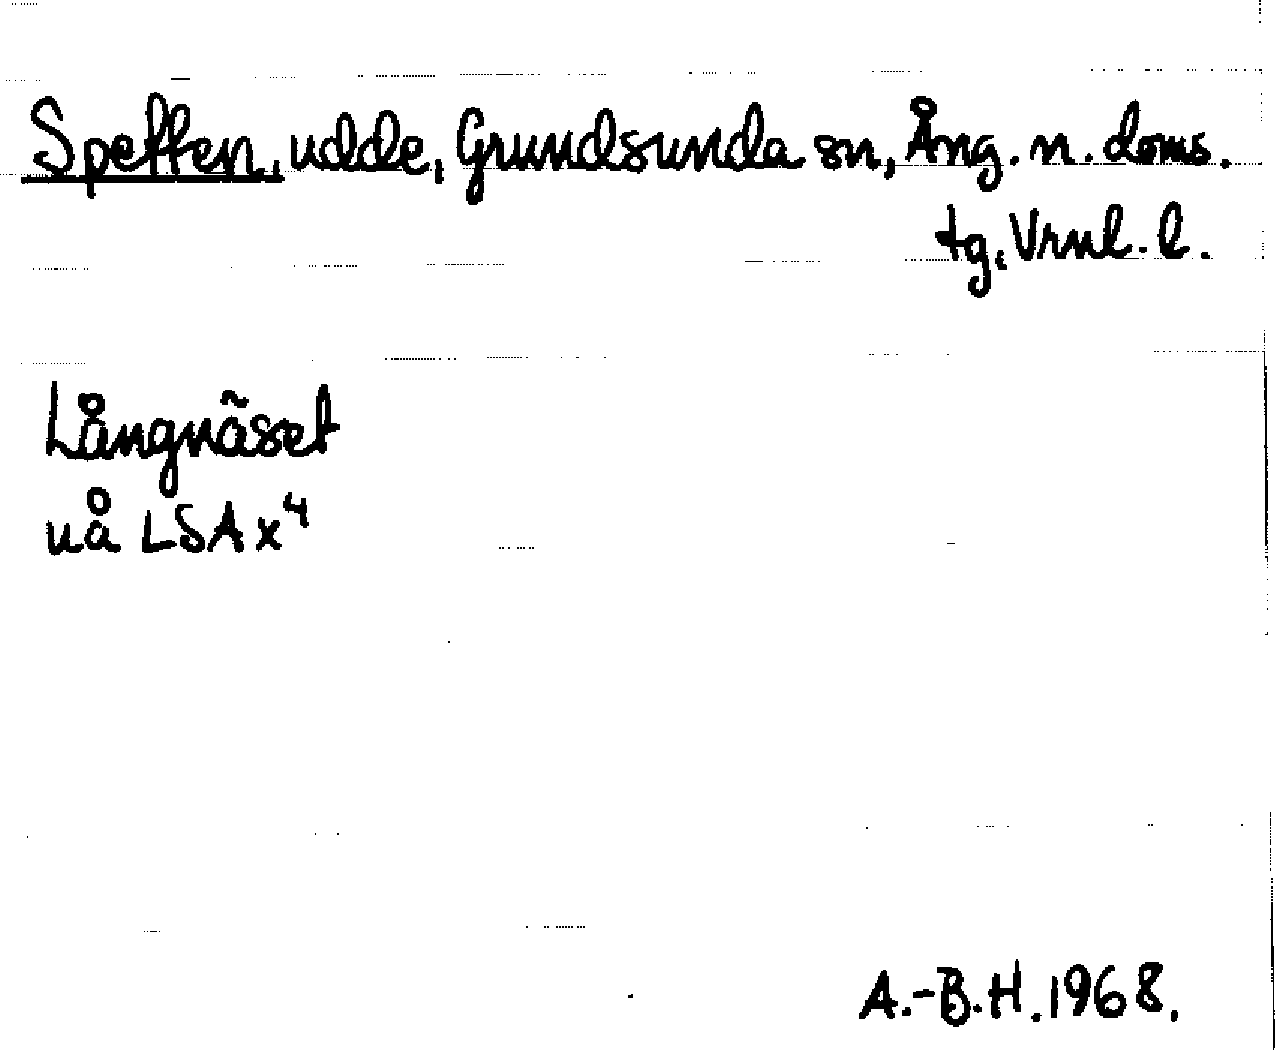 Spetten, udde, Grundsunda sn, Ång. n. doms.
tg, Vrnl. l.
Långnäset
uå LSA x⁴
A.-B.H. 1968.